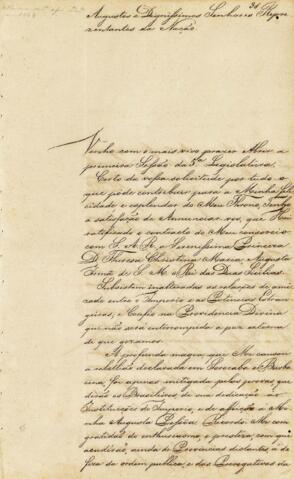 36
Augustos e Dignissimos Senhores Repre
zentantes da Nação.
Venho com o mais vivo prazer Abrir a
primeira Sessão da 5ª Legislatura.
Certo da vossa solicitude por tudo o
que pode contribuir para a Minha feli
cidade e esplendor do Meu Throno, Tenho
a satisfação de Annunciar-vos, que Hei
ratificado o contracto do Meu consorcio
com S. A. R. a Serenissima Princeza
D. Thereza Christina Maria, Augusta
Irmã de S. M. o Rei das Duas Sicilias.
Subsistem inalteradas as relações de ami
zade entre o Imperio e as Potencias Estran
geiras, e Confio na Providencia Divina
que não será interrompida a paz externa
de que gozamos.
A profunda magoa que Me causou
a rebellião declarada em Sorocaba e Barba
cena, foi apenas mitigada pelas provas, que
derão os Brasileiros de sua dedicação ás
Instituições do Imperio, e de affeição á Mi
nha Augusta Pessoa. Recordo-Me com
gratidão do enthusiasmo e presteza, com que
acudirão, ainda de Provincias distantes, á de
feza da ordem publica, e das Prerogativas da